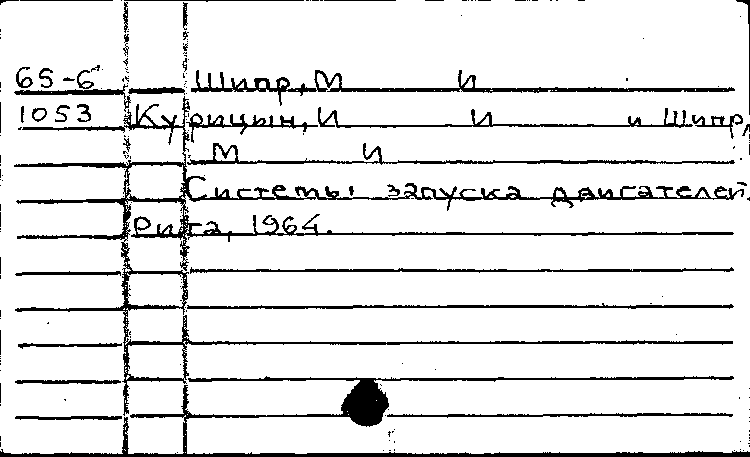 65-6 Шипр, М И
1053 Курицын, И И и Шипр,
М И
Системы запуска двигателей.
Рига, 1964.